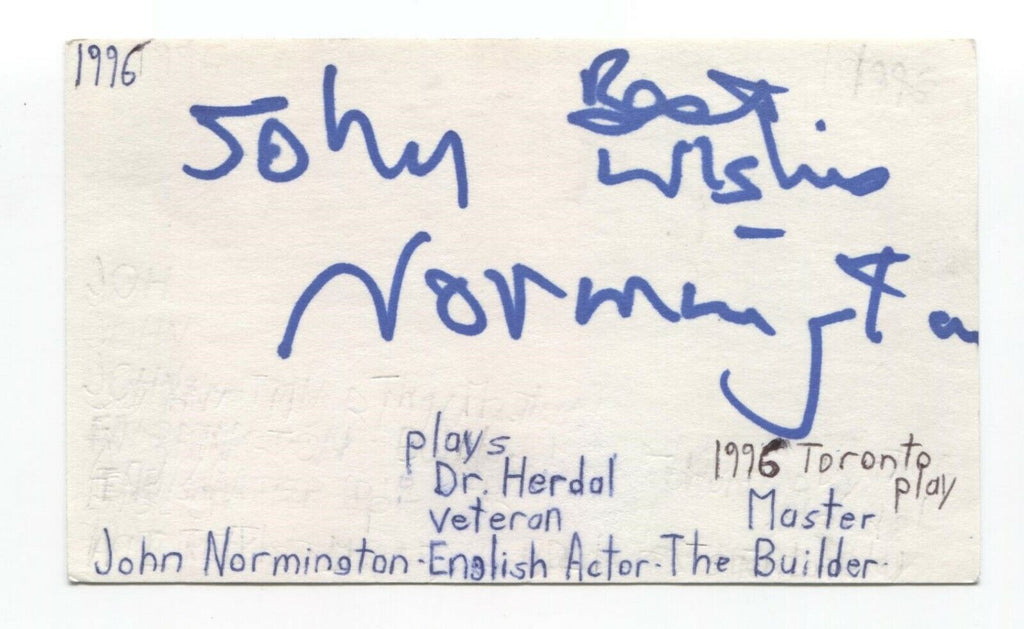 1996
John Best
Wishes
Normington
plays
Dr. Herdal
veteran
1996 Toronto
play
Master
John Normington · English Actor · The Builder ·